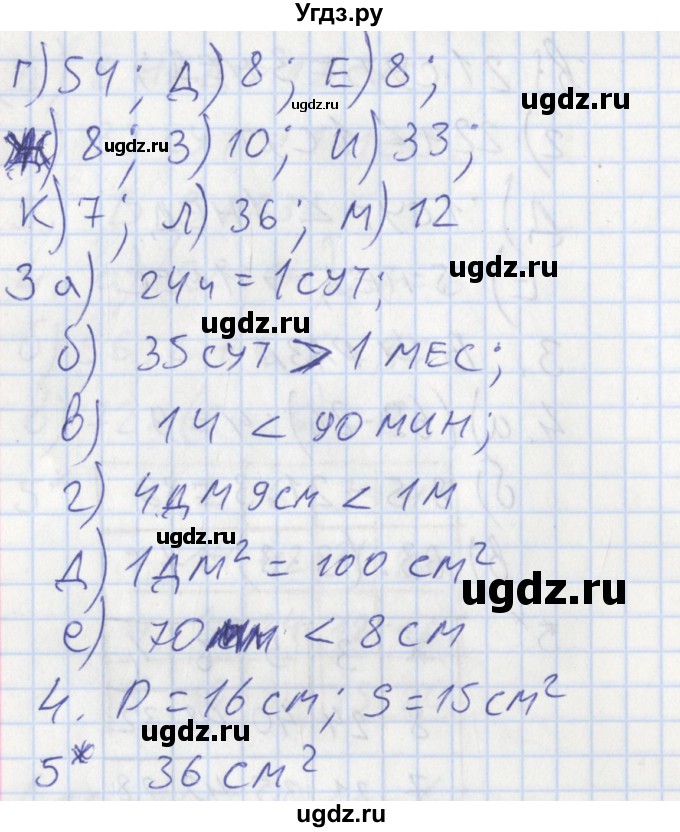 Угдз.ру
г) 54; Д) 8; Е) 8;
ugdz.ru
ugdz.ru
Ж) 8; З) 10; И) 33;
ugdz.ru
К) 7; Л) 36; М) 12
3 а) 24ч = 1 сут;
ugdz.ru
ugdz.ru
б) 35 сут > 1 мес;
в) 1ч < 90 мин;
ugdz.ru
г) 4 дм 9 см < 1 м
ugdz.ru
д) 1 дм² = 100 см²
ugdz.ru
е) 70 мм < 8 см
4. P = 16 см; S = 15 см²
ugdz.ru
5* 36 см²
ugdz.ru